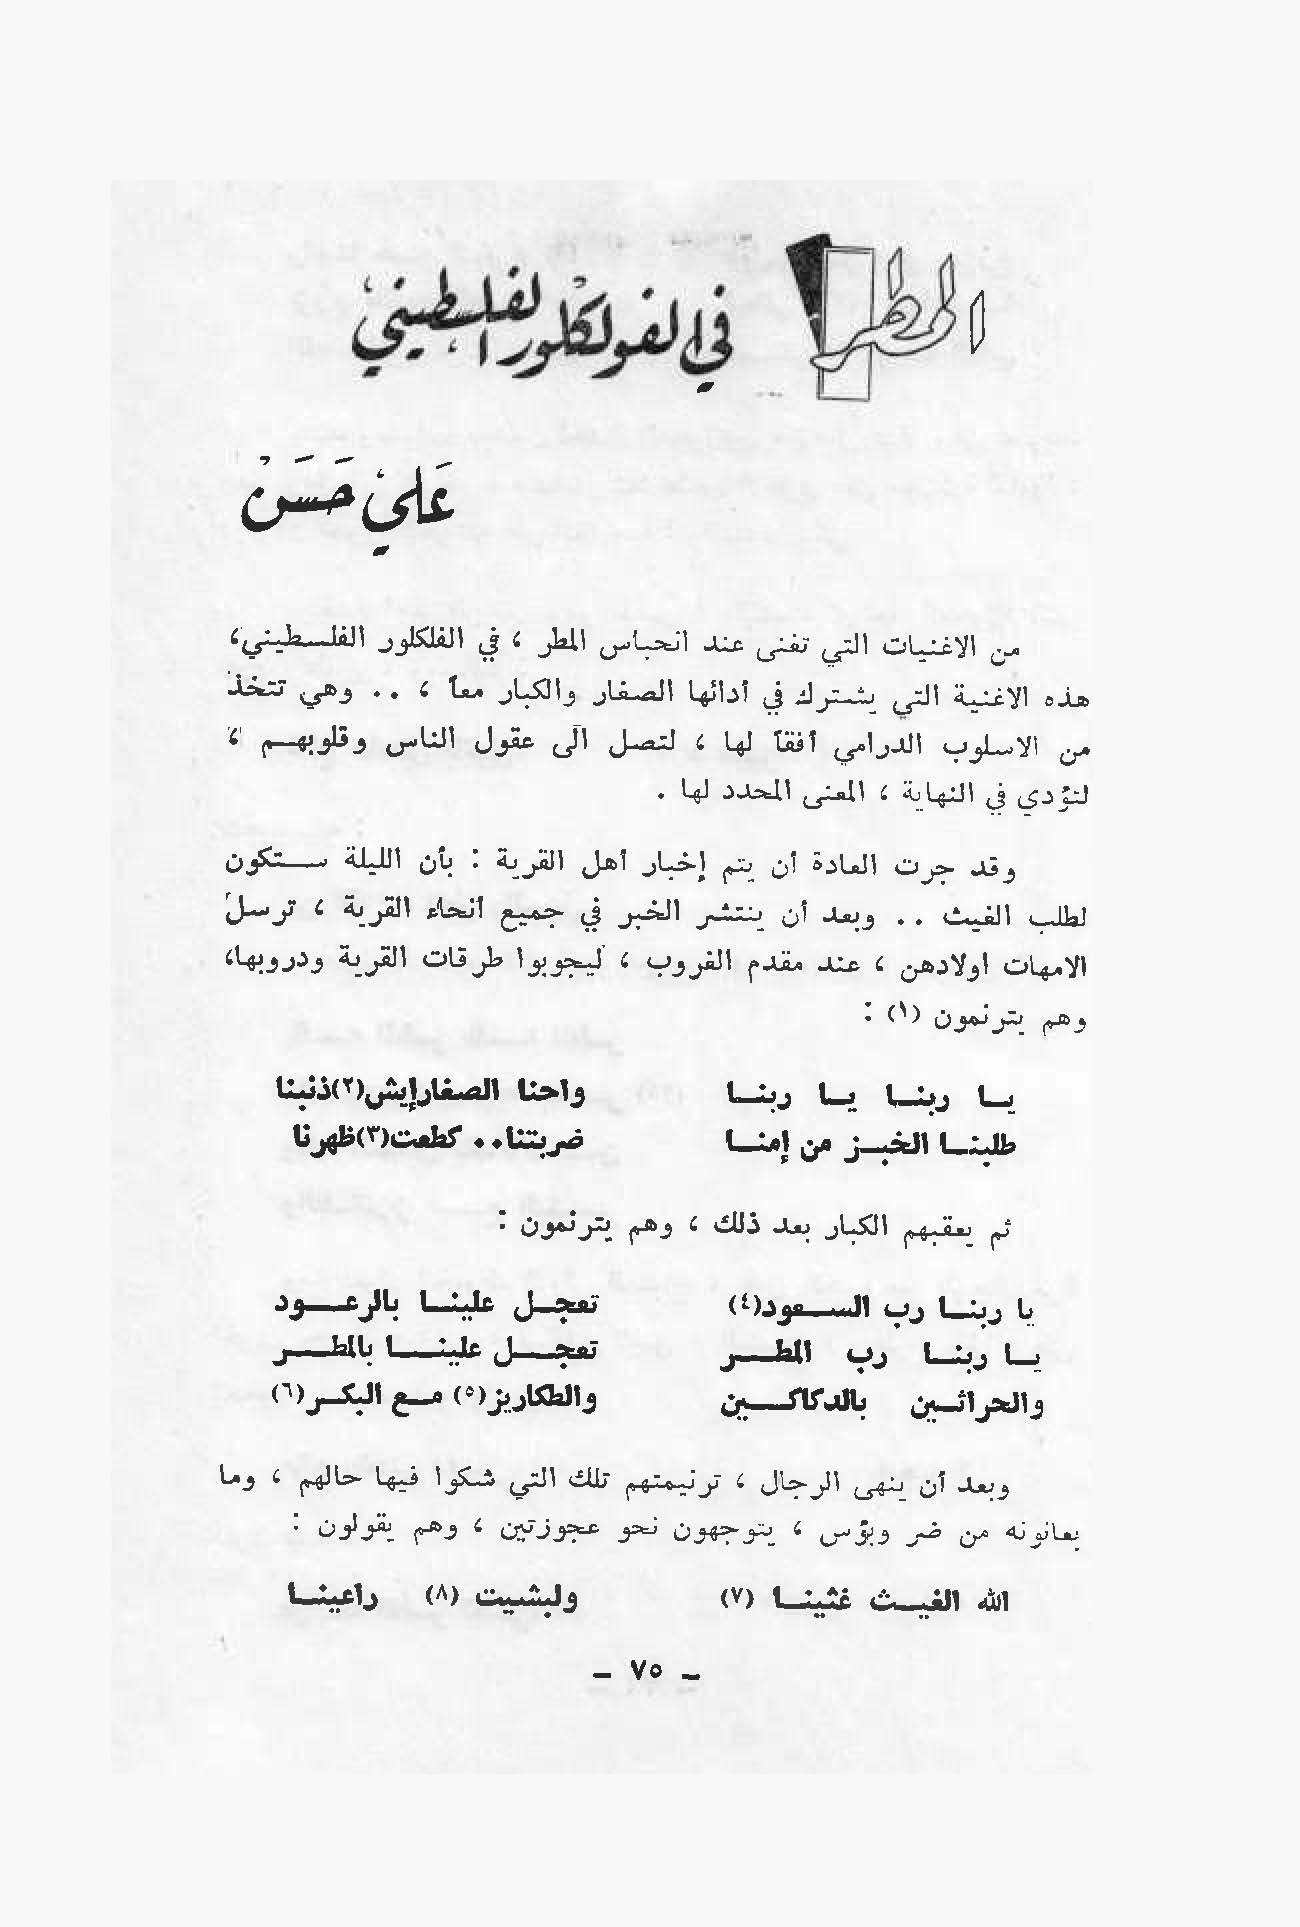 المطر في الفولكلور الفلسطيني
علي حسن
من الاغنيات التي تغنى عند انحباس المطر ، في الفلكلور الفلسطيني،
هذه الاغنية التي يشترك في أدائها الصغار والكبار معاً ، .. وهي تتخذ
من الاسلوب الدرامي أفقاً لها ، لتصل الى عقول الناس وقلوبهم ،
لتؤدي في النهاية ، المعنى المحدد لها .
وقد جرت العادة أن يتم إخبار أهل القرية : بأن الليلة ستكون
لطلب الغيث .. وبعد أن ينتشر الخبر في جميع أنحاء القرية ، ترسل
الامهات اولادهن ، عند مقدم الغروب ، ليجوبوا طرقات القرية ودروبها،
وهم يترنمون (١) :
يا ربنا يا ربنا واحنا الصغار إيش(٢)ذنبنا
طلبنا الخبز من إمنا ضربتنا.. كطعت(٣)ظهرنا
ثم يعقبهم الكبار بعد ذلك ، وهم يترنمون :
يا ربنا رب السعود(٤) تعجل علينا بالرعود
يا ربنا رب المطر تعجل علينا بالمطر
والحراثين بالدكاكين والطكاريز(٥) مع البكر(٦)
وبعد أن ينهى الرجال ، ترنيمتهم تلك التي شكوا فيها حالهم ، وما
يعانونه من ضر وبؤس ، يتوجهون نحو عجوزتين ، وهم يقولون :
الله الغيث غثينا (٧) ولبشيت (٨) راعينا
– ٧٥ –